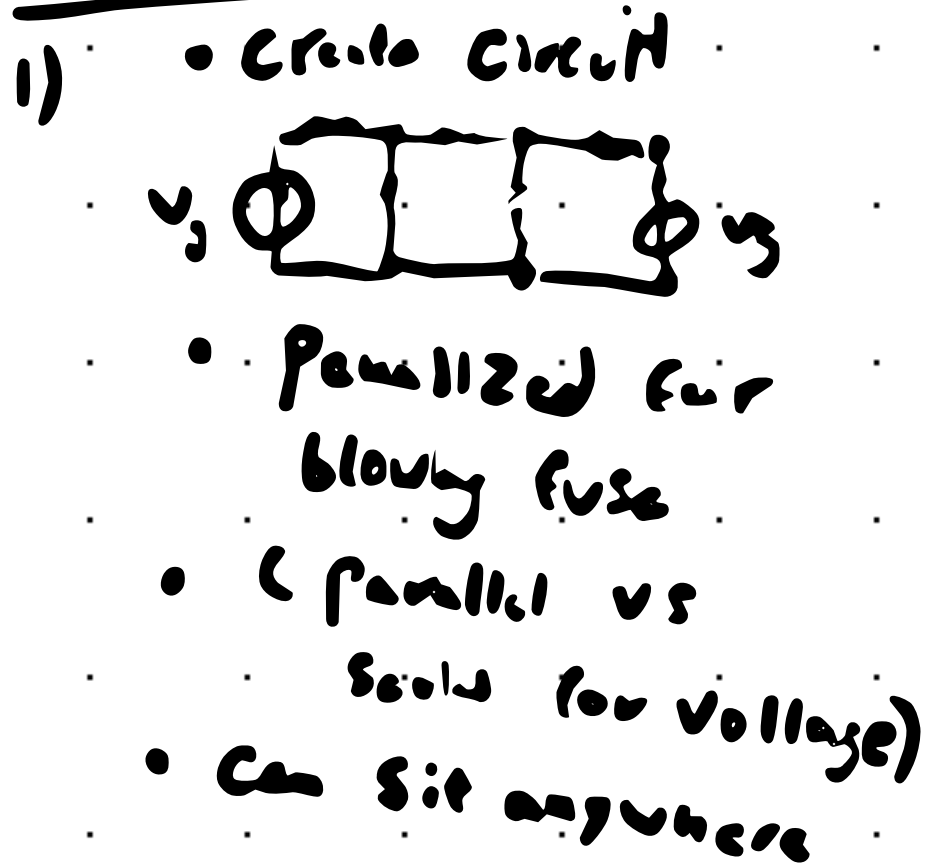 1)
• Create Circuit
Vg Vg
• Parallized for
blowing fuse
• (parallel vs
for voltage)
• Can sit anywhere